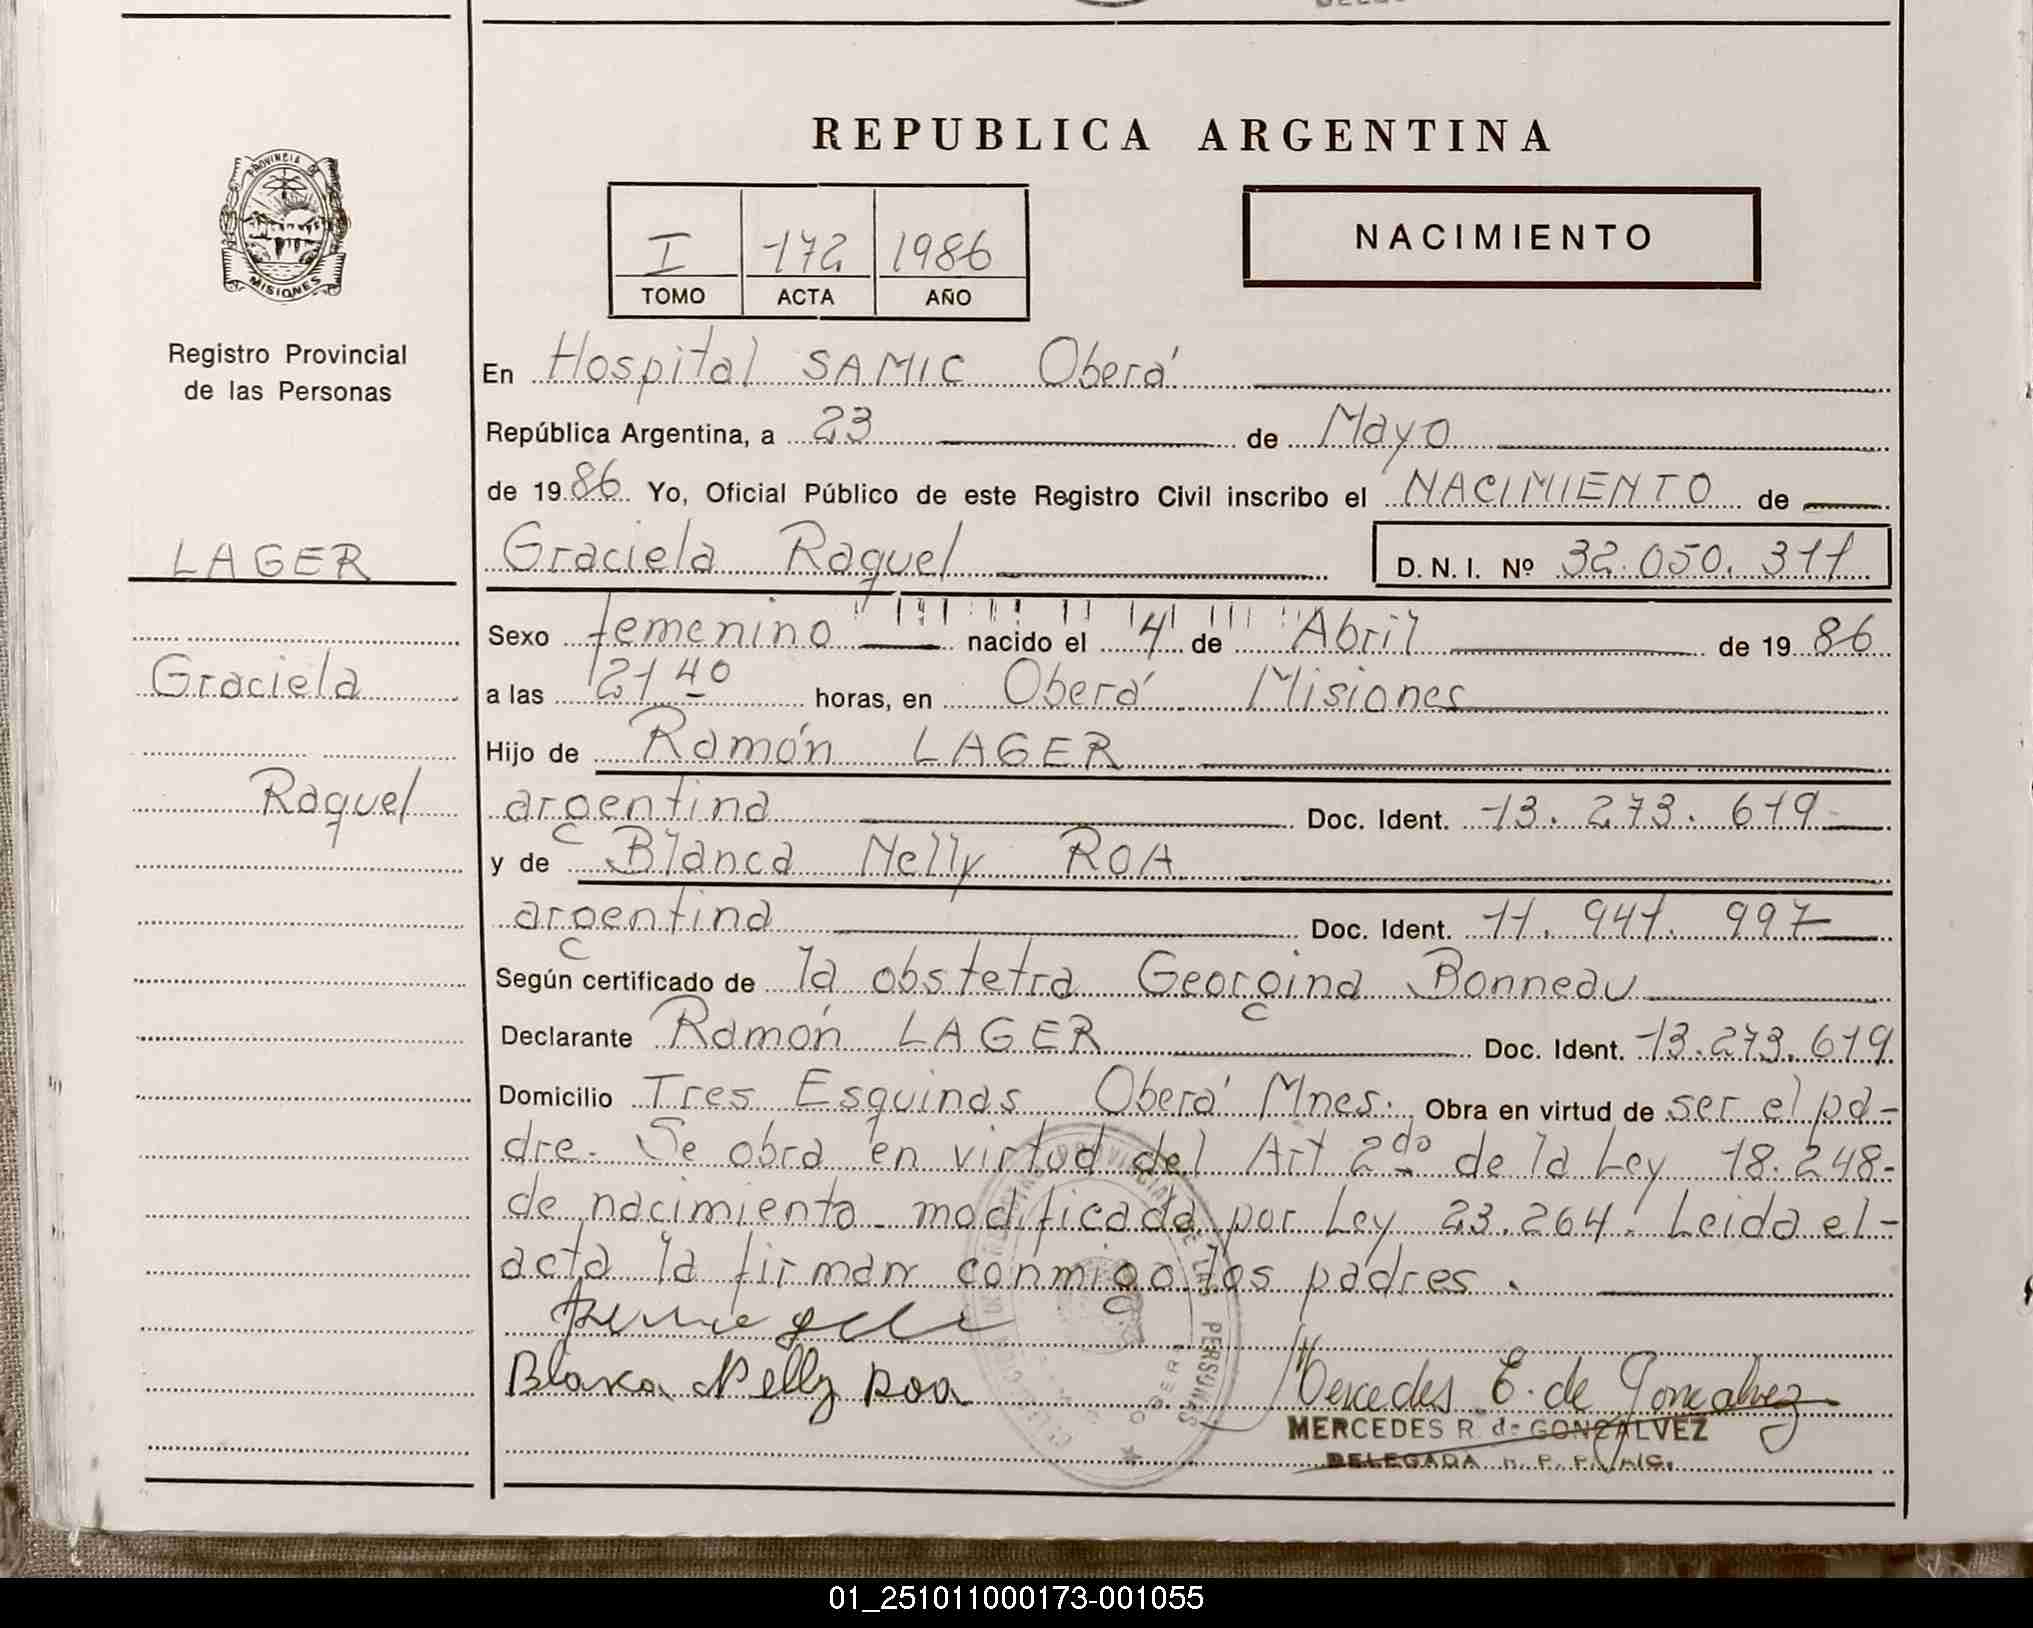 REPUBLICA ARGENTINA
PROVINCIA DE
MISIONES
Registro Provincial
de las Personas
I 172 1986
TOMO ACTA AÑO
NACIMIENTO
En Hospital SAMIC Oberá
República Argentina, a 23 de Mayo
de 1986 Yo, Oficial Público de este Registro Civil inscribo el NACIMIENTO de
LAGER
Graciela Raquel D.N.I. Nº 32.050.311
Sexo femenino nacido el 4 de Abril de 1986
Graciela
a las 21 40 horas, en Oberá Misiones
Hijo de Ramón LAGER
Raquel
argentina Doc. Ident. 13.273.619
y de Blanca Nelly ROA
argentina Doc. Ident. 11.941.997
Según certificado de la obstetra Georgina Bonneau
Declarante Ramón LAGER Doc. Ident. 13.273.619
Domicilio Tres Esquinas Oberá Mnes. Obra en virtud de ser el pa-
dre. Se obra en virtud del Art 2do de la Ley 18.248-
de nacimiento modificada por Ley 23.264. Leida el-
acta la firman conmigo los padres.
Blanca Nelly Roa
Mercedes E. de Gonçalvez
MERCEDES R. de GONZALVEZ
DELEGADA R. P. P.
01_251011000173-001055